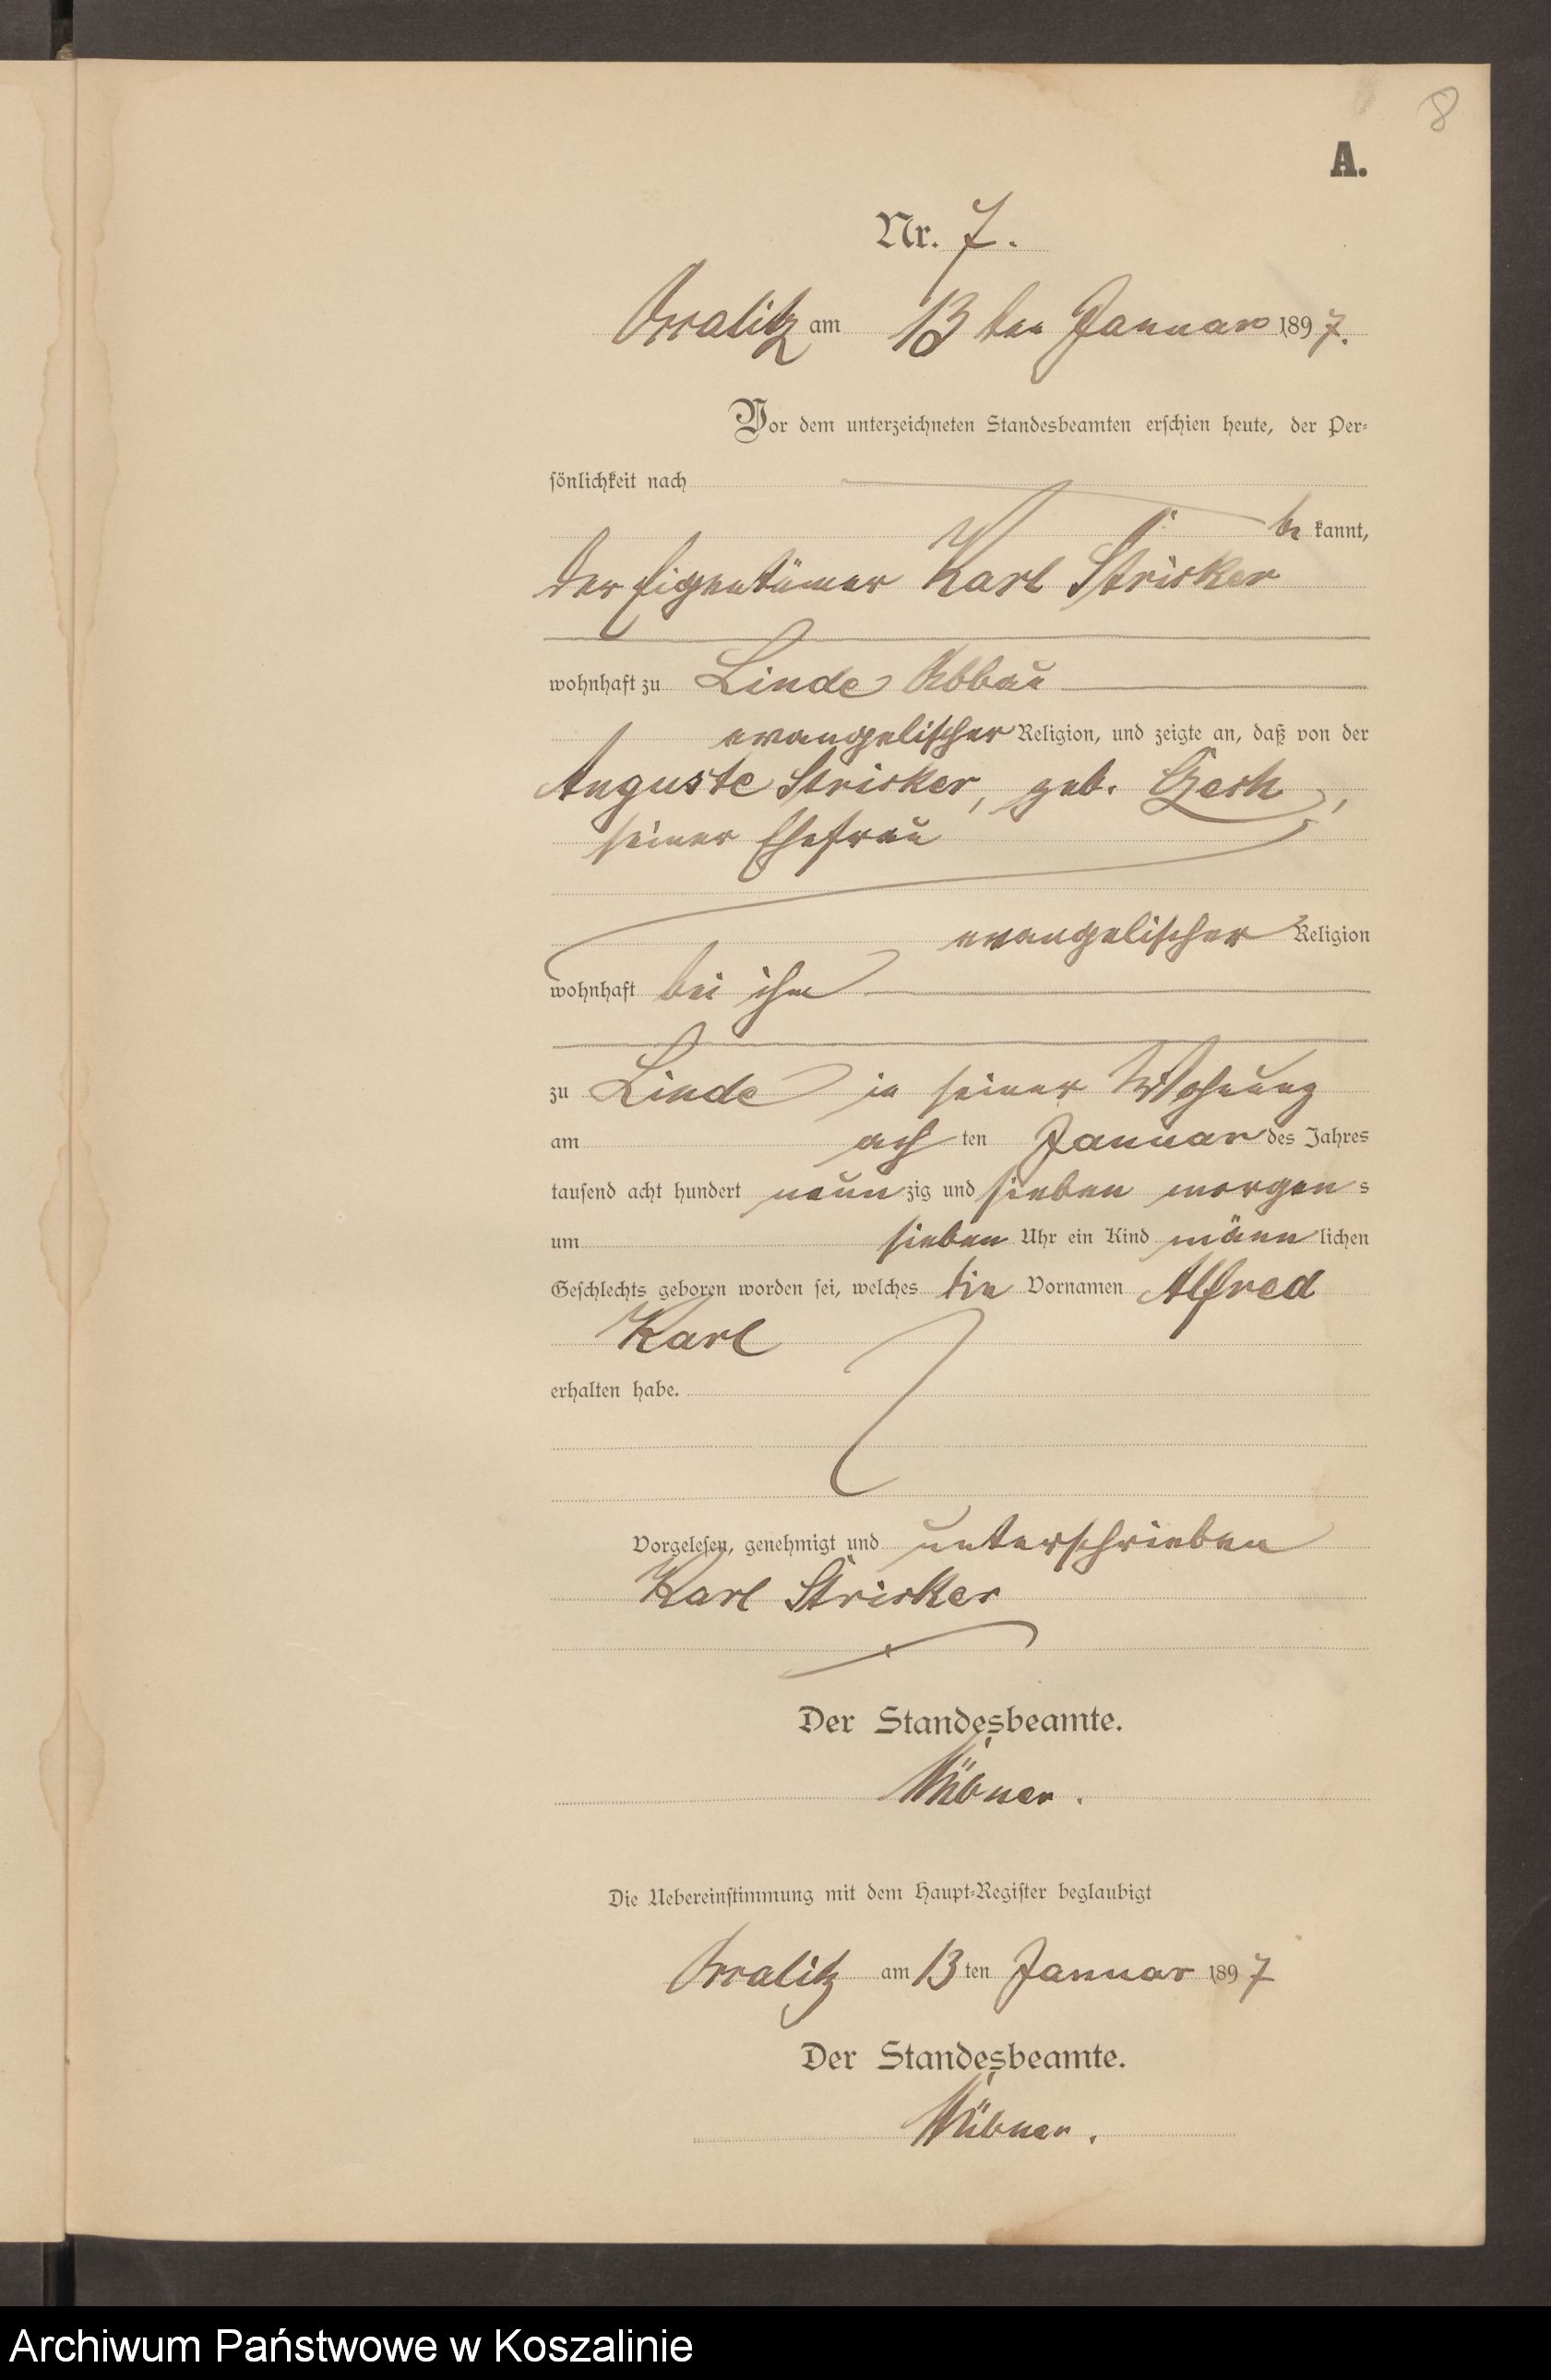 8
A.
Nr. 7.
Arralitz am 13 ten Januar 1897.
Vor dem unterzeichneten Standesbeamten erschien heute, der Per-
sönlichkeit nach
be kannt,
der Eigentümer Karl Stricker
wohnhaft zu Linde Abbau
evangelischer Religion, und zeigte an, daß von der
Auguste Stricker, geb.
seiner Ehefrau
evangelischer Religion
wohnhaft bei ihm
zu Linde in seiner Wohnung
am ach ten Januar des Jahres
tausend acht hundert neun zig und sieben morgens
um sieben Uhr ein Kind männ lichen
Geschlechts geboren worden sei, welches die Vornamen Alfred
Karl
erhalten habe.
Vorgelesen, genehmigt und unterschrieben
Karl Stricker
Der Standesbeamte.
Hübner.
Die Uebereinstimmung mit dem Haupt-Register beglaubigt
Arralitz am 13 ten Januar 1897
Der Standesbeamte.
Hübner.
Archiwum Państwowe w Koszalinie